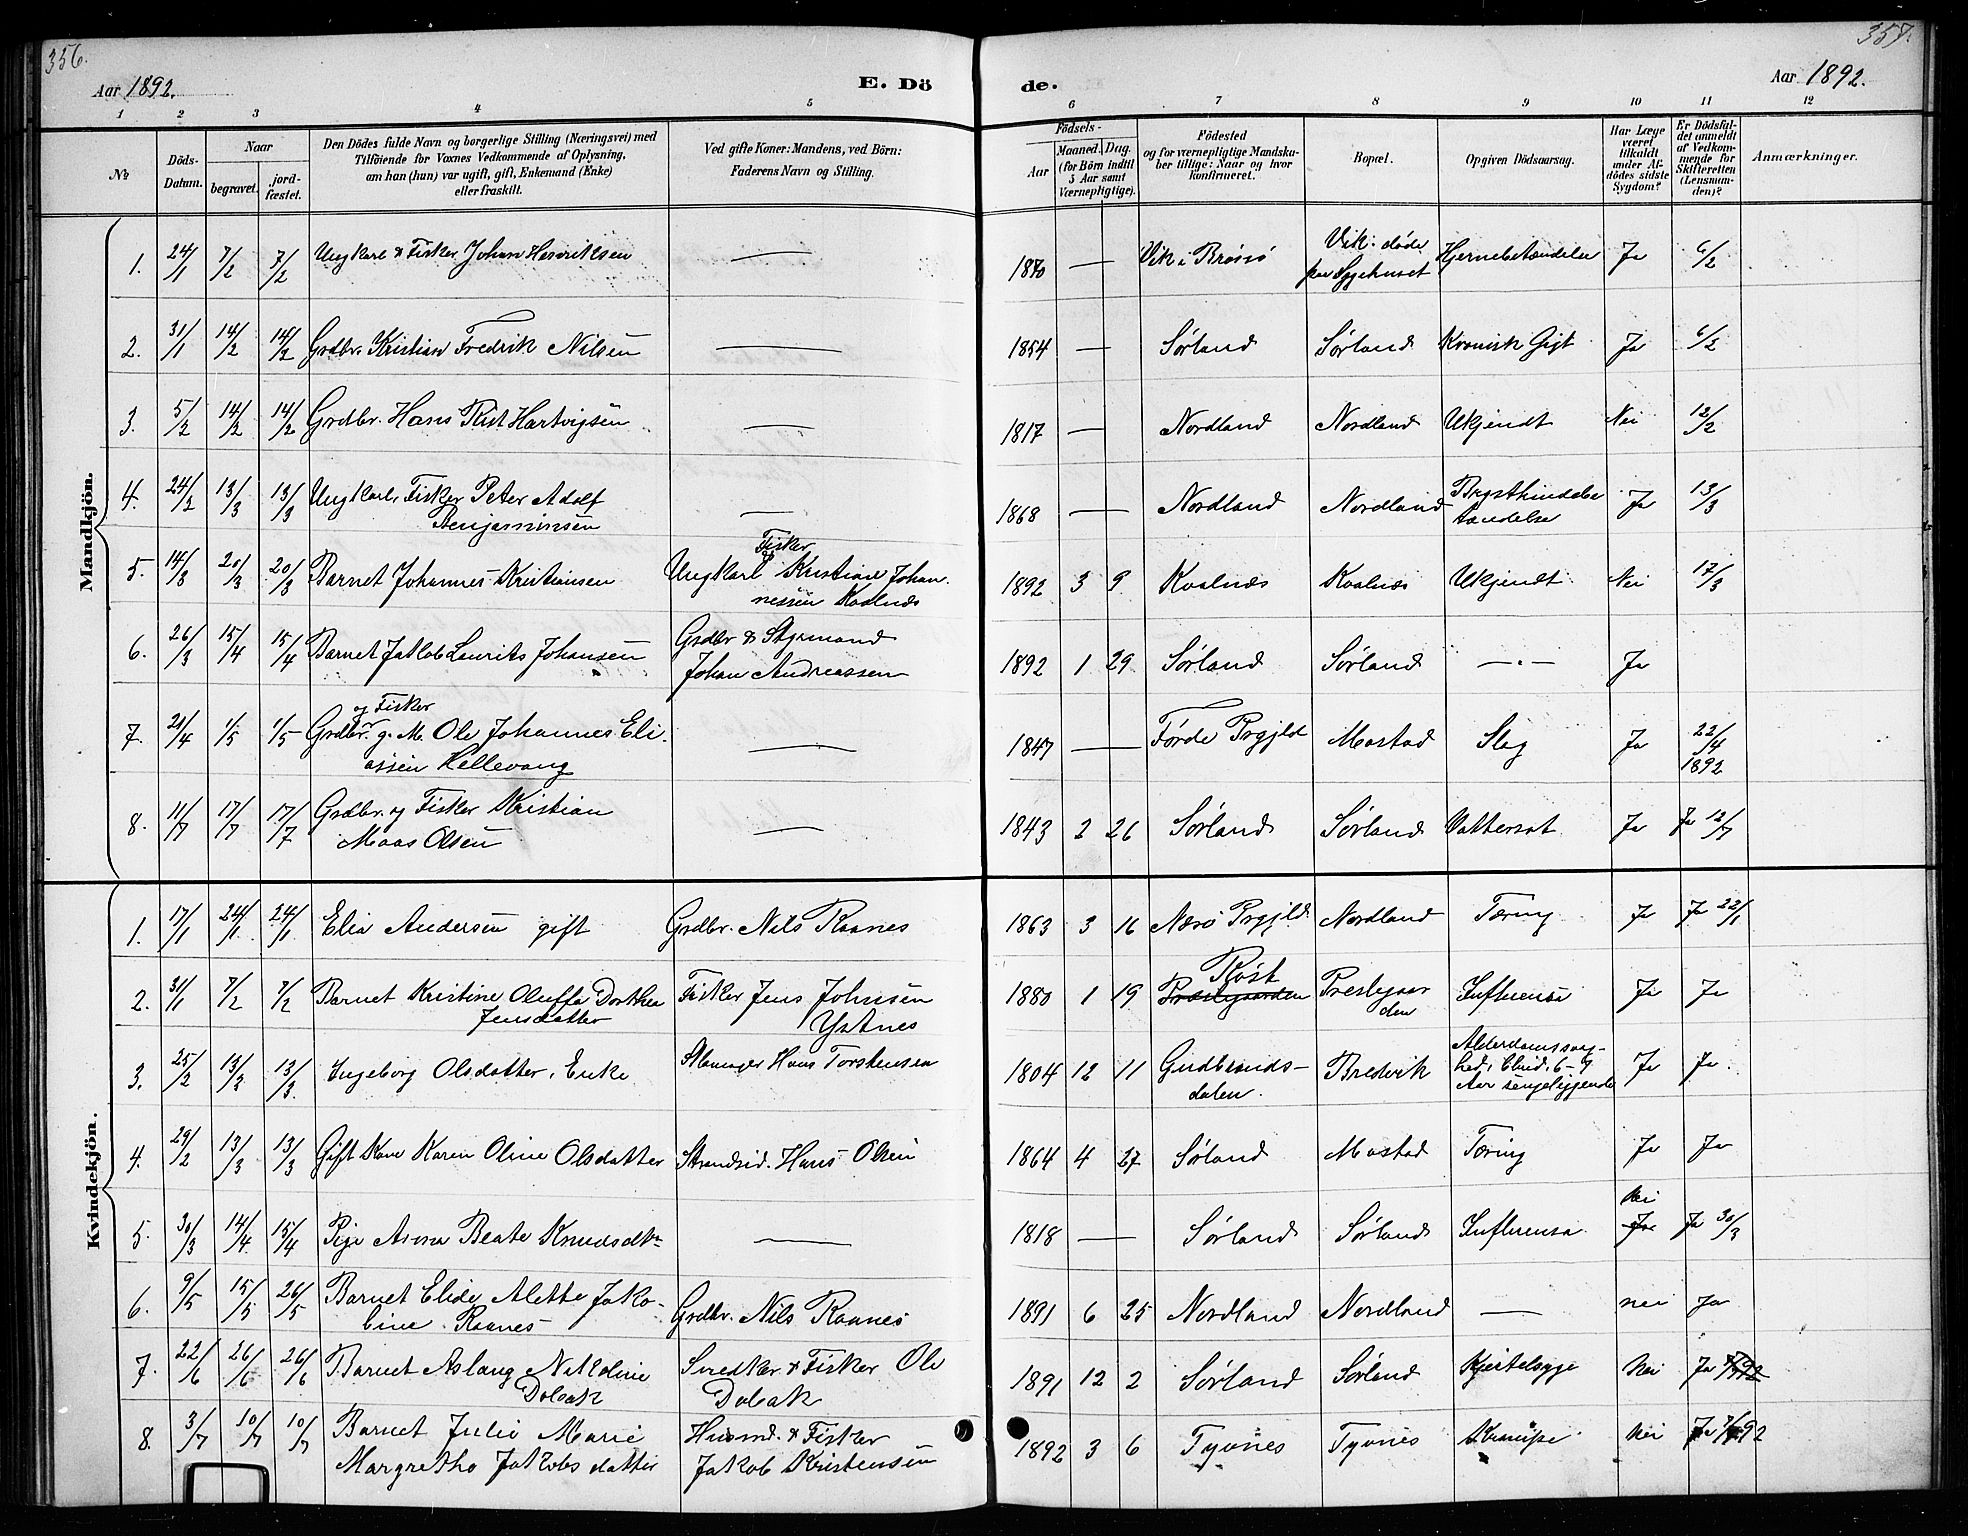 356.
357.
Aar 1892.
E. Dö
de.
Aar 1892.
1 2 3 4 5 6 7 8 9 10 11 12
№
Döds-
Datum.
Naar
begravet.
jord-
fæstet.
Den Dödes fulde Navn og borgerlige Stilling (Næringsvei) med
Tilföiende for Voxnes Vedkommende af Oplysning,
om han (hun) var ugift, gift, Enkemand (Enke)
eller fraskilt.
Ved gifte Koner: Mandens, ved Börn:
Faderens Navn og Stilling.
Födsels-
Aar
Maaned. Dag.
(for Börn indtil
5 Aar samt
Værnepligtige).
Födested
og for værnepligtige Mandska-
ber tillige: Naar og hvor
konfirmeret.
Bopæl.
Opgiven Dödsaarsag.
Har Læge
været
tilkaldt
under Af-
dödes sidste
Sygdom?
Er Dödsfal-
det anmeldt
af Vedkom-
mende for
Skifteretten
(Lensman-
den)?
Anmærkninger.
Mandkjön.
1. 24/1 7/2 7/2 Ungkarl & Fisker Johan Henriksen — 1870 — Vik i Brønnø Vik. døde Hjernebetændelse Ja 6/2
paa Sygehuset
2. 31/1 14/2 14/2 Grdbr. Kristian Fredrik Nilsen — 1854 — Sørland Sørland Kronisk Gigt Ja 6/2
3. 5/2 14/2 14/2 Grdbr. Hans Rist Hartvigsen — 1817 — Nordland Nordland Ukjendt Nei 12/2
4. 24/2 13/3 13/3 Ungkarl, Fisker Peter Adolf — 1868 — Nordland Nordland Brysthindebe Ja 13/3
Benjaminsen
tændelse
Fisker
5. 14/3 20/3 20/3 Barnet Johannes Kristiansen Ungkarl & Kristian Johan- 1892 3 9 Kvalnæs Kvalnæs Ukjendt Nei 17/3
nessen Kvalnæs
6. 26/3 15/4 15/4 Barnet Jakob Laurits Johansen Grdbr & Styrmand 1892 1 29 Sørland Sørland —„— Ja
Johan Andreassen
og Fisker
7. 21/4 1/5 1/5 Grdbr. g. M. Ole Johannes Eli- — 1847 — Førde Prgjld Mostad Slag Ja 22/4
1892
assen Hellevang
8. 11/7 17/7 17/7 Grdbr. og Fisker Kristian — 1843 2 26 Sørland Sørland Vattersot Ja Ja 12/7
Maas Olsen
Kvindekjön.
1. 17/1 24/1 24/1 Elia Andersen gift Grdbr. Nils Raanes 1863 3 16 Nærø Prgjld Nordland Tæring Ja Ja 22/1
2. 31/1 7/2 7/2 Barnet Kristine Oluffa Dorthea Fisker Jens Johnsen 1880 1 19 Røst Præstegaarden Prestegaar Influensa Ja Ja
Jensdatter
Ystnes
den
3. 25/2 13/3 13/3 Ingeborg Olsdatter, Enke Hans Torstensen 1804 12 11 Gudbrands- Bredvik Alderdomssvag- Ja Ja
dalen.
hed, 6-7
Aar sengeliggende
4. 29/2 13/3 13/3 Gift Kone Karen Oline Olsdatter Strandsid. Hans Olsen 1864 4 27 Sørland Mostad Tæring Ja Ja
Nei
5. 30/3 14/4 15/4 Pige Anna Beate Knudsdtr — 1818 — Sørland Sørland Influensa Ja Ja 30/3
6. 9/5 15/5 26/5 Barnet Elide Alette Jako- Grdbr. Nils Raanes 1891 6 25 Nordland Nordland — nei Ja
bine Raanes
7. 22/6 26/6 26/6 Barnet Aslaug Nikoline Snedker & Fisker Ole 1891 12 2 Sørland Sørland Kjertelsyge Nei Ja
Dolsak
Dolsak
8. 3/7 10/7 10/7 Barnet Julie Marie Husmd. & Fisker 1892 3 6 Tyvnes Tyvnes Krampe Nei Ja 7/7 92
Margrethe Jakobsdatter
Jakob Kristensen